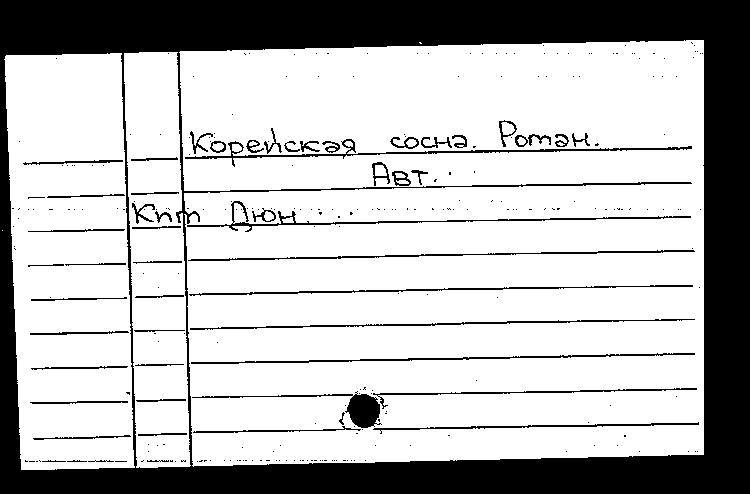 Корейская сосна. Роман.
Авт...
Ким Дюн....